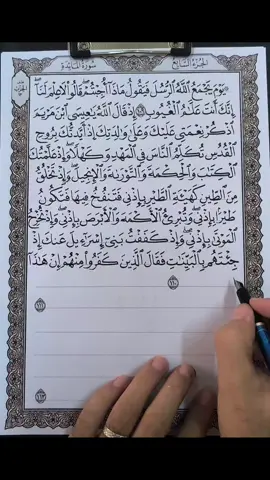 الجزء السابع
سورة المائدة
يَوْمَ يَجْمَعُ ٱللَّهُ ٱلرُّسُلَ فَيَقُولُ مَاذَآ أُجِبْتُمْ ۖ قَالُوا۟ لَا عِلْمَ لَنَآ ۖ
إِنَّكَ أَنتَ عَلَّٰمُ ٱلْغُيُوبِ ١٠٩ إِذْ قَالَ ٱللَّهُ يَٰعِيسَى ٱبْنَ مَرْيَمَ
ٱذْكُرْ نِعْمَتِى عَلَيْكَ وَعَلَىٰ وَٰلِدَتِكَ إِذْ أَيَّدتُّكَ بِرُوحِ
ٱلْقُدُسِ تُكَلِّمُ ٱلنَّاسَ فِى ٱلْمَهْدِ وَكَهْلًا ۖ وَإِذْ عَلَّمْتُكَ
ٱلْكِتَٰبَ وَٱلْحِكْمَةَ وَٱلتَّوْرَىٰةَ وَٱلْإِنجِيلَ ۖ وَإِذْ تَخْلُقُ
مِنَ ٱلطِّينِ كَهَيْـَٔةِ ٱلطَّيْرِ بِإِذْنِى فَتَنفُخُ فِيهَا فَتَكُونُ
طَيْرًۢا بِإِذْنِى ۖ وَتُبْرِئُ ٱلْأَكْمَهَ وَٱلْأَبْرَصَ بِإِذْنِى ۖ وَإِذْ تُخْرِجُ
ٱلْمَوْتَىٰ بِإِذْنِى ۖ وَإِذْ كَفَفْتُ بَنِىٓ إِسْرَٰٓءِيلَ عَنكَ إِذْ
جِئْتَهُم بِٱلْبَيِّنَٰتِ فَقَالَ ٱلَّذِينَ كَفَرُوا۟ مِنْهُمْ إِنْ هَٰذَآ
١١٠
١١١
١١٣